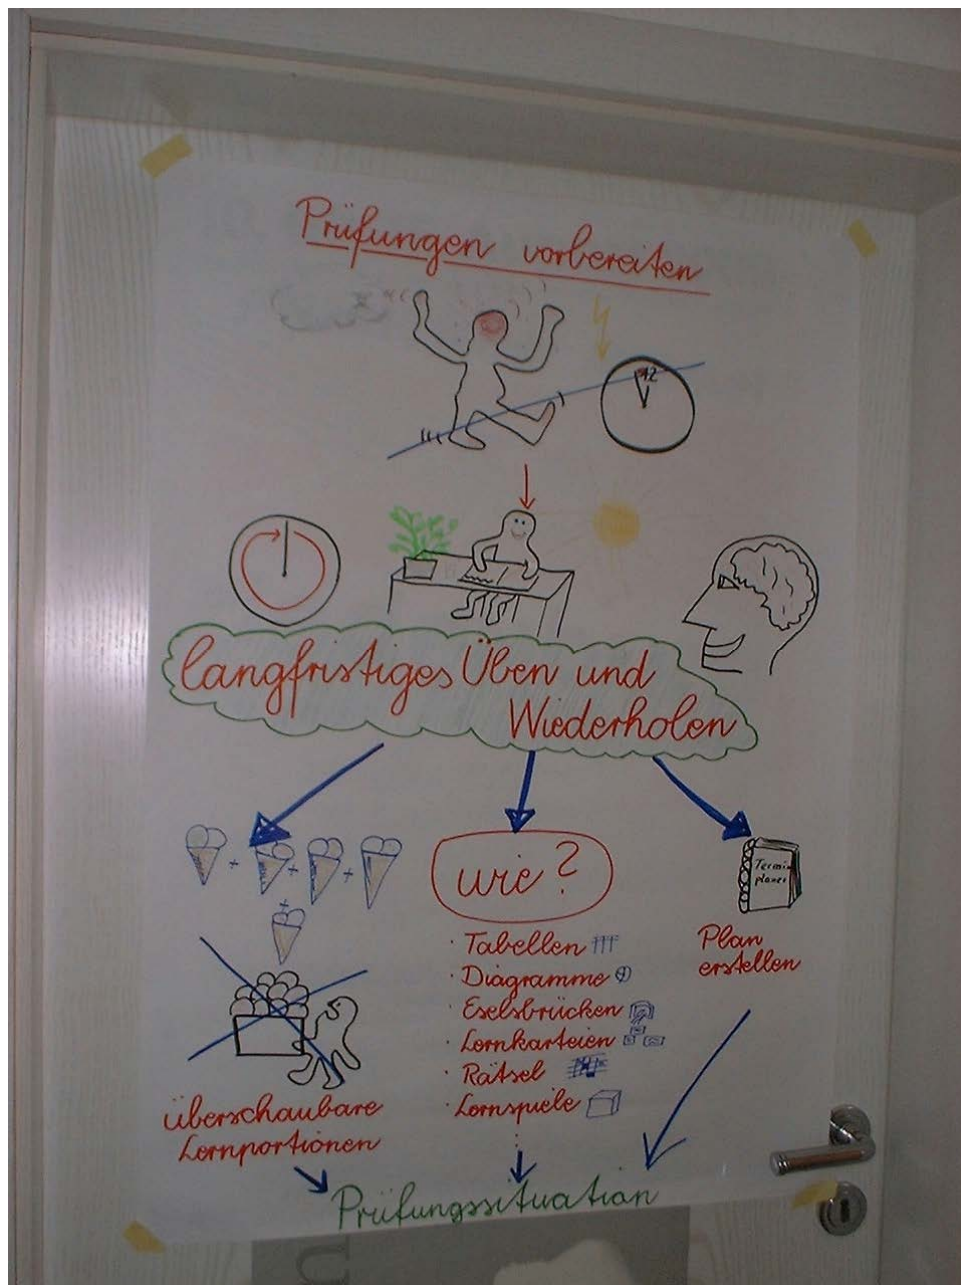 Prüfungen vorbereiten
12
langfristiges Üben und
Wiederholen
wie?
Termin
planer
· Tabellen
· Diagramme
· Eselsbrücken
· Lernkarteien
· Rätsel
· Lernspiele
Plan
erstellen
überschaubare
Lernportionen
Prüfungssituation
n